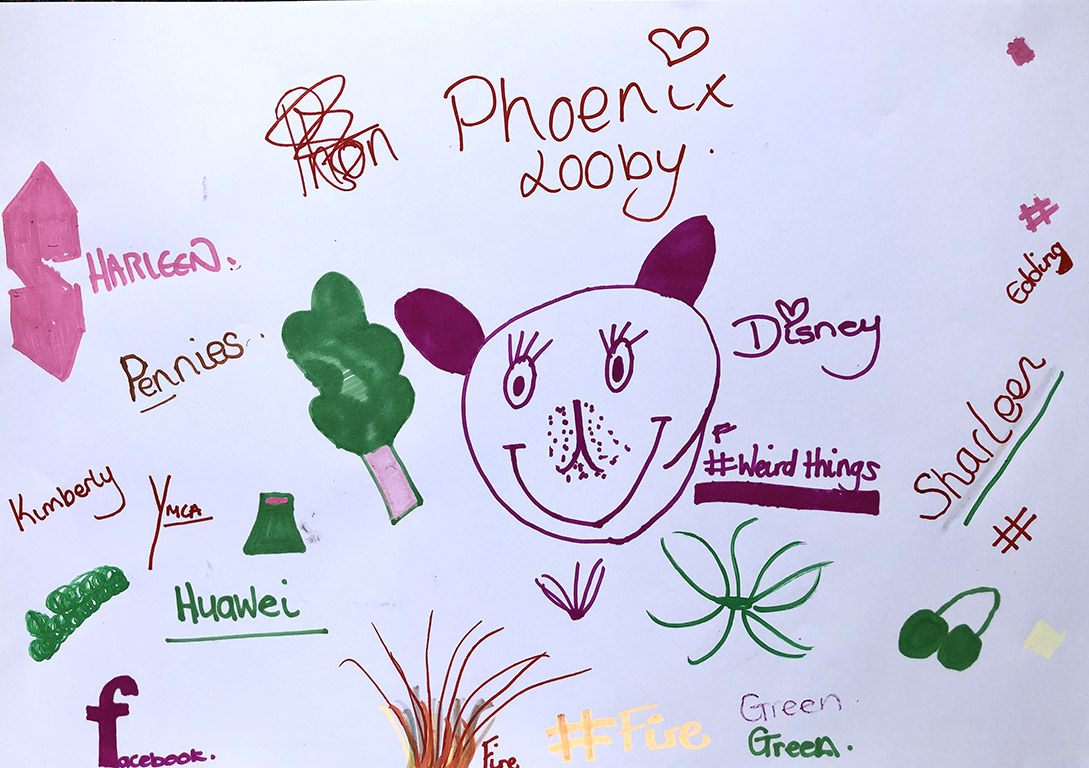 Phoenix
Looby.
SHARLEEN.
Pennies.
Disney
#
Edding
#Weird things
Sharleen
#
Kimberly
YMCA
Huawei
facebook.
Fire
#Fire
Green
Green.